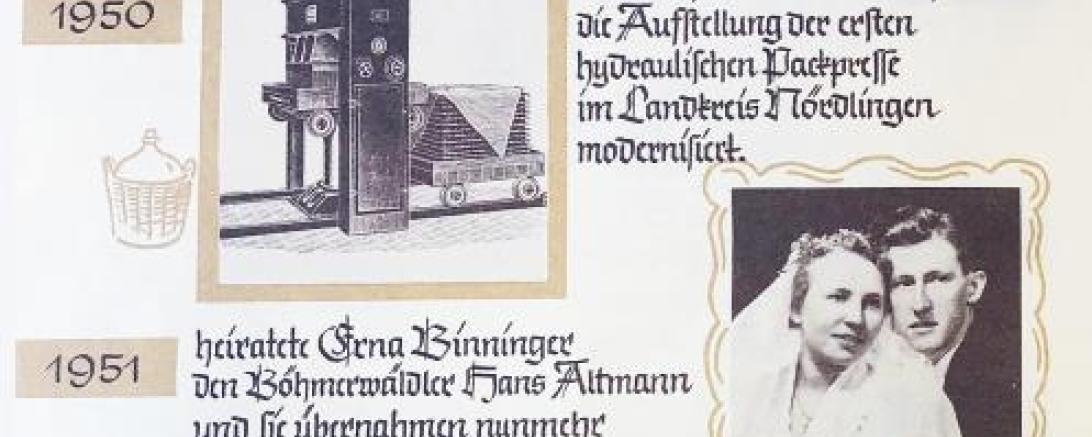 1950
die Aufstellung der ersten
hydraulischen Packpresse
im Landkreis Nördlingen
modernisiert.
1951
heiratete Erna Binninger
den Böhmerwäldler Hans Altmann
und sie übernahmen nunmehr